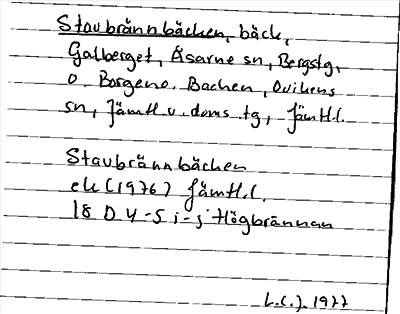 Staubrännbäcken, bäck,
Galberget, Åsarne sn, Bergs tg,
o. Borgeno. Backen, Ovikens
sn, Jämtl. v. doms. tg, Jämtl. l.
Staubrännbäcken
ek (1976) Jämtl. l.
18 D 4-5 i-j Högbrännan
1977